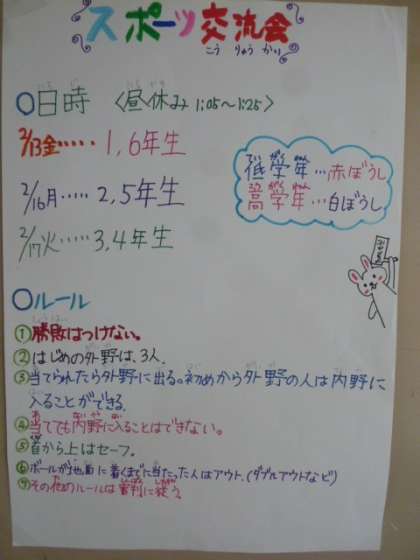 スポーツ交流会
こうりゅうかい
○日時 〈昼休み 1:05〜1:25〉
2/13金・・・・・1,6年生
2/16月・・・・・2,5年生
2/17火・・・・・3,4年生
低学年…赤ぼうし
高学年…白ぼうし
○ルール
①勝敗はつけない。
②はじめの外野は、3人.
③当てられたら外野に出る。初めから外野の人は内野に
入ることができる.
④当てても内野に入ることはできない。
⑤首から上はセーフ。
⑥ボールが地面に着くまでに当たった人はアウト.(ダブルアウトなど)
⑦その他のルールは審判に従う。